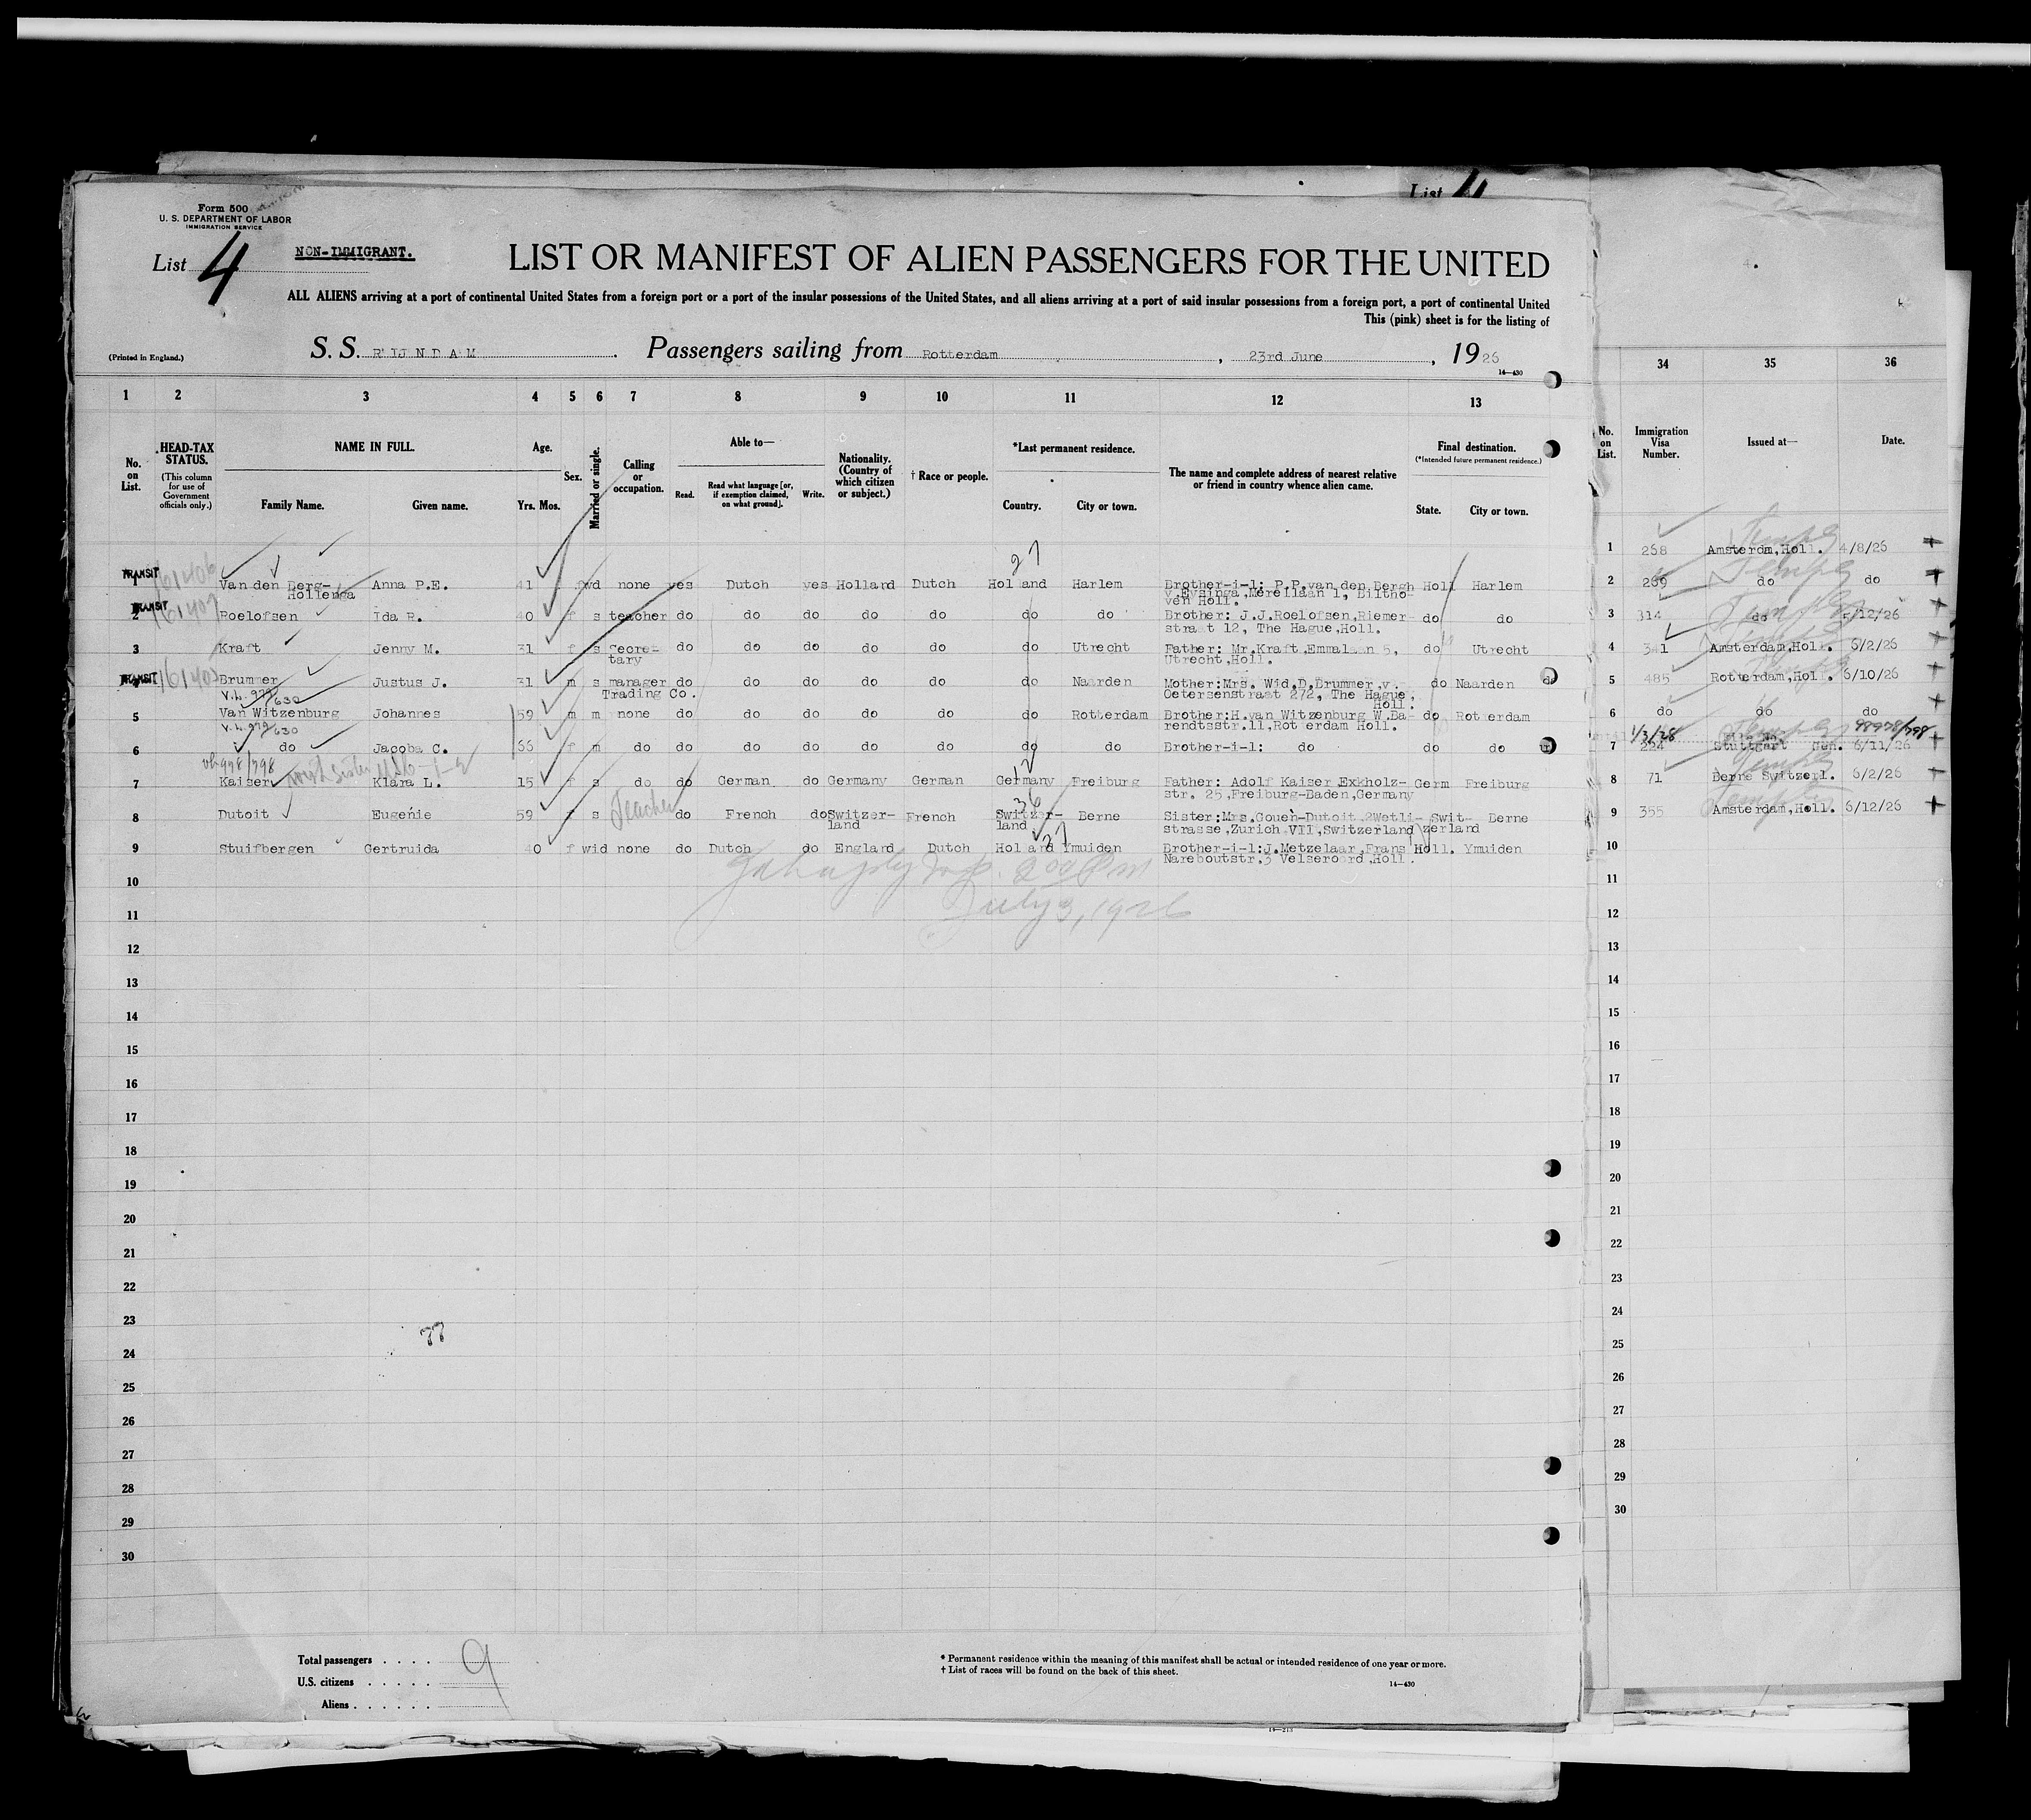 List 4
Form 500
U. S. DEPARTMENT OF LABOR
IMMIGRATION SERVICE
List 4
NON-IMMIGRANT.
LIST OR MANIFEST OF ALIEN PASSENGERS FOR THE UNITED
ALL ALIENS arriving at a port of continental United States from a foreign port or a port of the insular possessions of the United States, and all aliens arriving at a port of said insular possessions from a foreign port, a port of continental United
This (pink) sheet is for the listing of
(Printed in England.)
S. S. RIJNDAM. Passengers sailing from Rotterdam, 23rd June, 1926
14—430
1 2 3 4 5 6 7 8 9 10 11 12 13
No. on List.
HEAD-TAX STATUS.
(This column for use of Government officials only.)
NAME IN FULL.
Family Name. Given name.
Age.
Yrs. Mos.
Sex.
Married or single.
Calling or occupation.
Able to—
Read. Read what language [or, if exemption claimed, on what ground]. Write.
Nationality. (Country of which citizen or subject.)
† Race or people.
*Last permanent residence.
Country. City or town.
The name and complete address of nearest relative or friend in country whence alien came.
Final destination.
(*Intended future permanent residence.)
State. City or town.
27
TRANSIT 161406
1 Van den Berg- Anna P.E. 41 f wd none yes Dutch yes Holland Dutch Holland Harlem Brother-i-l: P.P.van den Bergh Holl Harlem
Hollenga v.Eysinga,Merellaan 1, Biltho-
ven Holl.
TRANSIT 161407
2 Roelofsen Ida R. 40 f s teacher do do do do do do do Brother: J.J.Roelofsen,Riemer- do do
straat 12, The Hague,Holl.
3 Kraft Jenny M. 31 f s Secre- do do do do do do Utrecht Father: Mr.Kraft,Emmalaan 5, do Utrecht
tary Utrecht,Holl.
TRANSIT
4 Brummer Justus J. 31 m s manager do do do do do do Naarden Mother:Mrs. Wid.D.Brummer,v. do Naarden
Trading Co. Oetersenstraat 272, The Hague,
Holl.
V.L. 979/630
5 Van Witzenburg Johannes 59 m m none do do do do do do Rotterdam Brother:H.van Witzenburg W.Ba- do Rotterdam
rendtsstr.11,Rotterdam Holl.
V.L. 979/630
6 do Jacoba C. 56 f m do do do do do do do do Brother-i-l: do do do
978/798 with sister
12
7 Kaiser Klara L. 15 f s do do German do Germany German Germany Freiburg Father: Adolf Kaiser,Exkholz- Germ Freiburg
str. 25,Freiburg-Baden,Germany
36
8 Dutoit Eugenie 59 f s Teacher do French do Switzer- French Switzer- Berne Sister:Mrs.Gouen-Dutoit,2Wetli- Swit- Berne
land land strasse,Zurich VII,Switzerland zerland
27
9 Stuifbergen Gertruida 40 f wid none do Dutch do England Dutch Holland Ymuiden Brother-i-l:J.Metzelaar,Frans Holl. Ymuiden
Nareboutstr.3 Velseroord,Holl.
2 00 P m
July 3, 1926
10
11
12
13
14
15
16
17
18
19
20
21
22
23
77
24
25
26
27
28
29
30
Total passengers . . . . 9
U.S. citizens . . . . .
Aliens . . . . . .
* Permanent residence within the meaning of this manifest shall be actual or intended residence of one year or more.
† List of races will be found on the back of this sheet.
14—430
14—213
34 35 36
No. on List. Immigration Visa Number. Issued at— Date.
1 268 Amsterdm,Holl. 4/8/26
2 269 do do
3 314 do 5/12/26
4 341 Amsterdam,Holl. 6/2/26
5 485 Rotterdam,Holl. 6/10/26
6 do do do
1/3/28 98978/798
7 224 Stuttgart Gen. 6/11/26
8 71 Berne Switzerl. 6/2/26
9 355 Amsterdam,Holl. 6/12/26
10
11
12
13
14
15
16
17
18
19
20
21
22
23
24
25
26
27
28
29
30